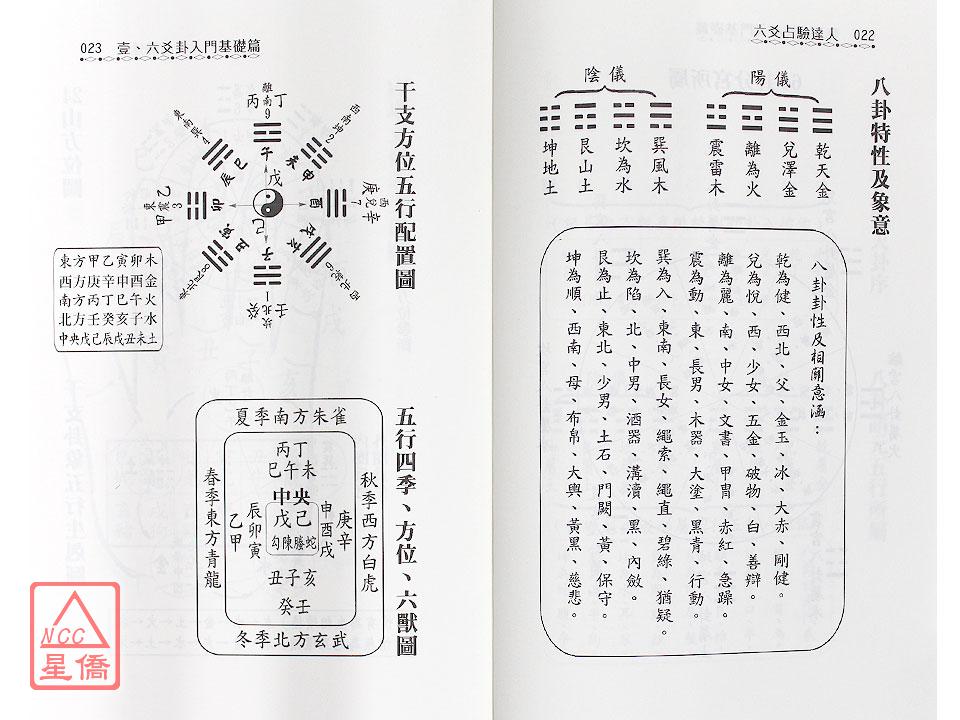 六爻占驗達人 022
八卦特性及象意
陽儀
陰儀
乾天金
兌澤金
離為火
震雷木
巽風木
坎為水
艮山土
坤地土
八卦卦性及相關意涵：
乾為健、西北、父、金玉、冰、大赤、剛健。
兌為悅、西、少女、五金、破物、白、善辯。
離為麗、南、中女、文書、甲冑、赤紅、急躁。
震為動、東、長男、木器、大塗、黑青、行動。
巽為入、東南、長女、繩索、繩直、碧綠、猶疑。
坎為陷、北、中男、酒器、溝瀆、黑、內斂。
艮為止、東北、少男、土石、門闕、黃、保守。
坤為順、西南、母、布帛、大輿、黃黑、慈悲。
023 壹、六爻卦入門基礎篇
干支方位五行配置圖
離南9
丙丁
西南坤2
庚
西兌7
辛
西北乾6
壬
坎北1
癸
東北艮8
甲
東震3
乙
東南巽4
午
未
申
酉
戌
亥
子
丑
寅
卯
辰
巳
戊
己
東方甲乙寅卯木
西方庚辛申酉金
南方丙丁巳午火
北方壬癸亥子水
中央戊己辰戌丑未土
五行四季、方位、六獸圖
夏季南方朱雀
秋季西方白虎
春季東方青龍
冬季北方玄武
丙丁
巳午未
中央
戊己
勾陳螣蛇
庚辛
申酉戌
辰卯寅
乙甲
丑子亥
癸壬
NCC
星僑